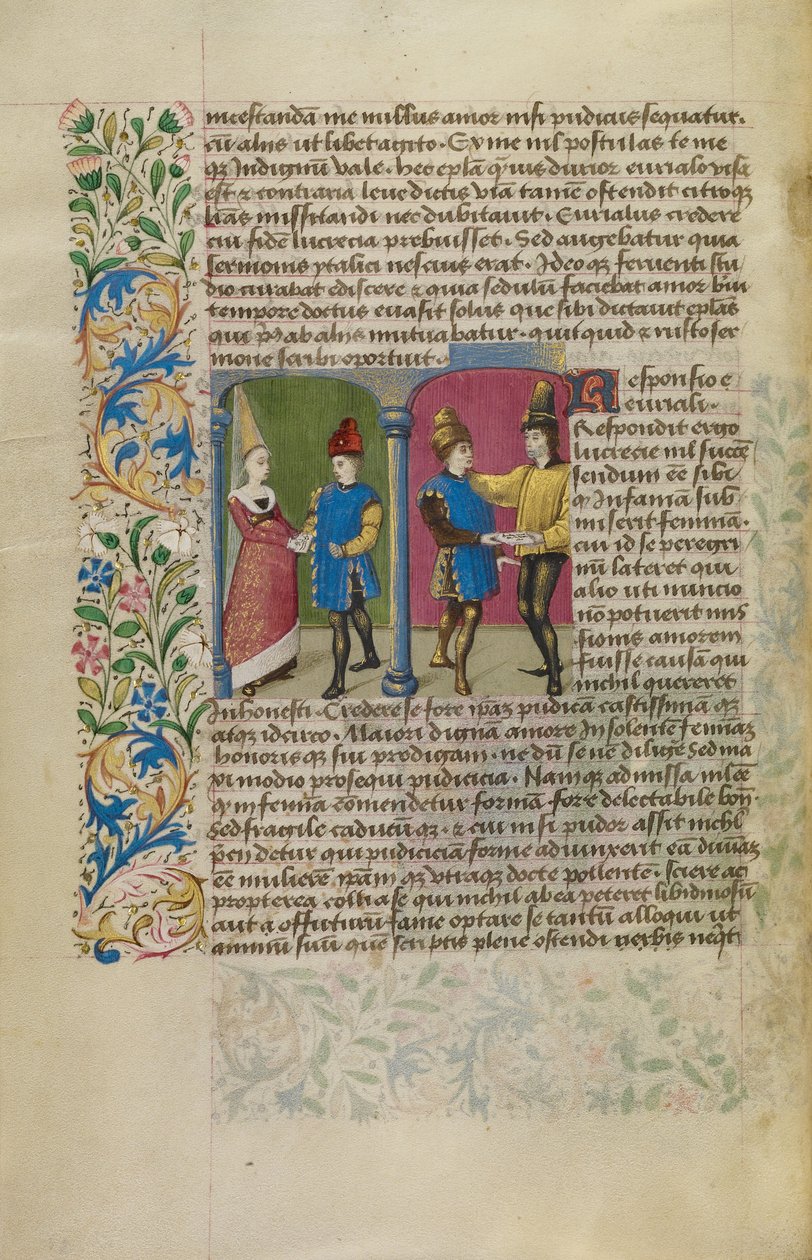 incestandā me nullus amor nisi pudicus sequatur.
cū aliis ut libet agito. Ex me nil postulas te me
qȝ Indignū vale. hec eplā q̄uis durior eurialo visa
est & contraria leue dictis viā tamē ostendit citroqȝ
lr̄as missitandi nec dubitauit. Eurialus credere
cui fidē lucrecia prebuisset. Sed augebatur quia
sermonis ytalici nescius erat. Ideo qȝ feruenti stu
dio curabat ediscere & quia sedulū faciebat amor b'ui
tempore doctus euasit solus que sibi dictauit eplās
qui p'ab aliis mutuabatur. quitquid & rusto ser
mone scribi oportuit.
Responsio e
euriali.
Respondit ergo
lucrecie nil succē
sendum eē sibi
q Infamā sub
miserit feminā.
cui id se peregri
nū lateret qui
alio uti nuncio
nō potuerit mis
sionis amorem
fuisse causā qui
nichil quereret
Inhonesti. Credere se fore ip̄az pudicā castissimā qȝ
atqȝ idcirco. Maiori dignā amore Insolentē feminā
honoris qȝ sui prodigam. ne dū se nē diligē Sed ma
ximodio prosequi pudicicia. Nam qȝ admissa nl eē
q in femīa cōmendetur formā. fore delectabile bon'.
Sed fragile caducū qȝ. & cui nisi pudor assit nichl
pēn detur qui pudiciciā forme adiunxerit eā diuinā
eē mulierē ip̄am qȝ vtraqȝ docte pollentē. sciere ac
propterea colli a se qui nichil ab ea peteret libidinosū
aut a offuturū fame optare se tantū alloqui ut
animū suū que scriptis plene ostendi verbis neq̄t